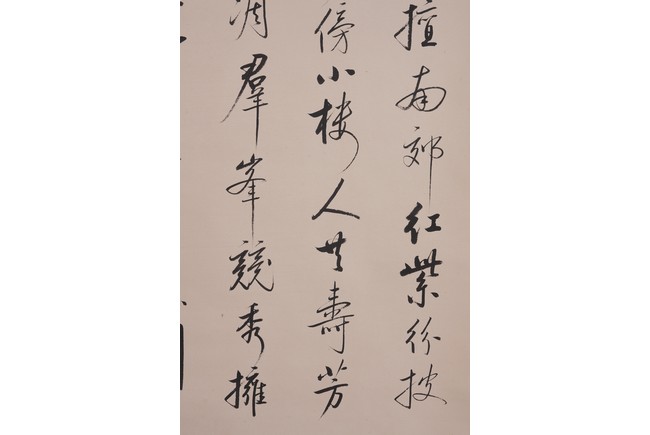 擅南郊红紫纷披
傍小楼人共寿芳
凋群峰竞秀拥